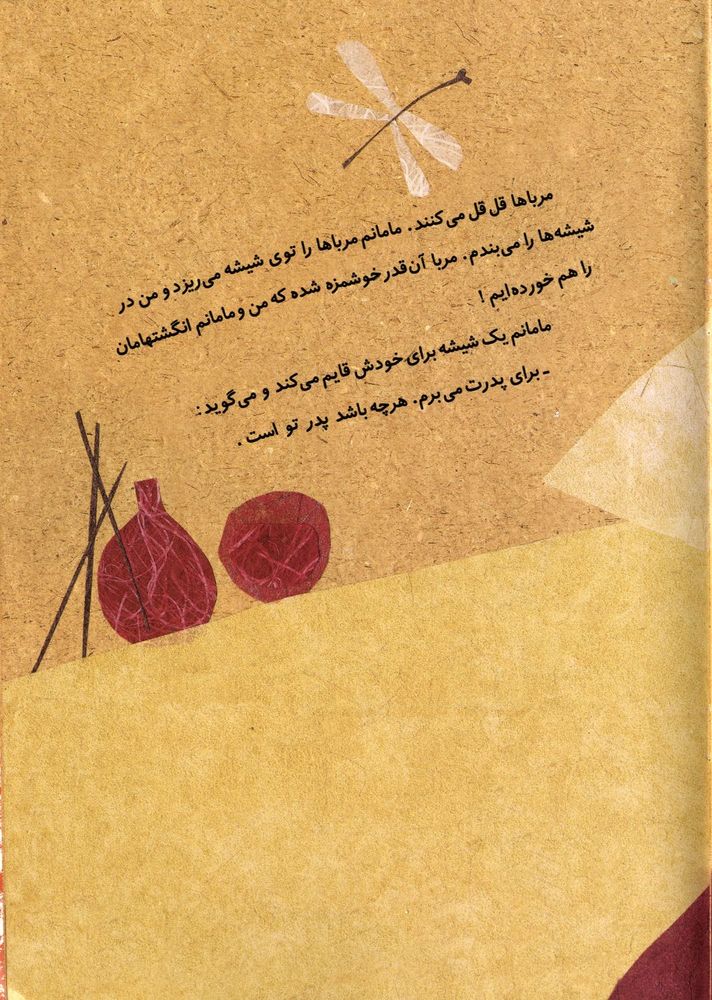 مرباها قل قل می‌کنند. مامانم مرباها را توی شیشه می‌ریزد و من در
شیشه‌ها را می‌بندم. مربا آن‌قدر خوشمزه شده که من و مامانم انگشتهامان
را هم خورده‌ایم !
مامانم یک شیشه برای خودش قایم می‌کند و می‌گوید :
ـ برای پدرت می‌برم. هرچه باشد پدر تو است .